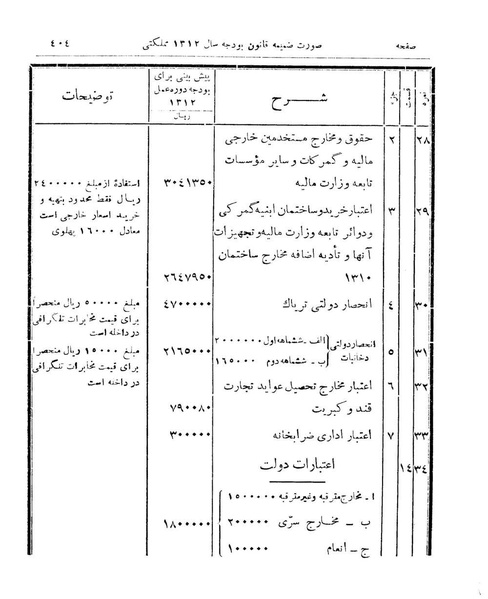 صفحه صورت ضمیمه قانون بودجه سال ۱۳۱۲ مملکتی ۴۰۴
نمره قسمت جزء شرح پیش بینی برای بودجه دوره عمل ۱۳۱۲ ریال توضیحات
۲۸ ۲ حقوق و مخارج مستخدمین خارجی
مالیه و گمرکات و سایر مؤسسات
تابعه وزارت مالیه ۳۰۴۱۳۵۰
۲۹ ۳ اعتبار خرید و ساختمان ابنیه گمرکی
و دوائر تابعه وزارت مالیه و تجهیزات
آنها و تأدیه اضافه مخارج ساختمان
۱۳۱۰ ۲۶۴۷۹۵۰
استفادهٔ از مبلغ ۲۴۰۰۰۰۰
ریال فقط محدود بتهیه و
خرید اسعار خارجی است
معادل ۱۶۰۰۰ پهلوی
۳۰ ۴ انحصار دولتی تریاک ۴۷۰۰۰۰۰
مبلغ ۵۰۰۰۰ ریال منحصراً
برای قیمت مخابرات تلگرافی
در داخله است
۳۱ ۵ انحصار دولتی دخانیات
الف - ششماهه اول ۲۰۰۰۰۰۰
ب - ششماهه دوم ۱۶۵۰۰۰ ۲۱۶۵۰۰۰
مبلغ ۱۵۰۰۰ ریال منحصراً
برای قیمت مخابرات تلگرافی
در داخله است
۳۲ ۶ اعتبار مخارج تحصیل عواید تجارت
قند و کبریت ۷۹۰۰۸۰
۳۳ ۷ اعتبار اداری ضرابخانه ۳۰۰۰۰۰
۳۴ ۱۴ اعتبارات دولت
ا - مخارج مترقبه و غیر مترقبه ۱۵۰۰۰۰۰
ب - مخارج سرّی ۲۰۰۰۰۰ ۱۸۰۰۰۰۰
ج - انعام ۱۰۰۰۰۰